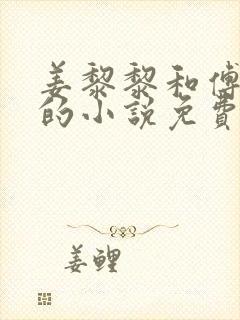 姜黎黎和傅
的小说免费
姜鲤